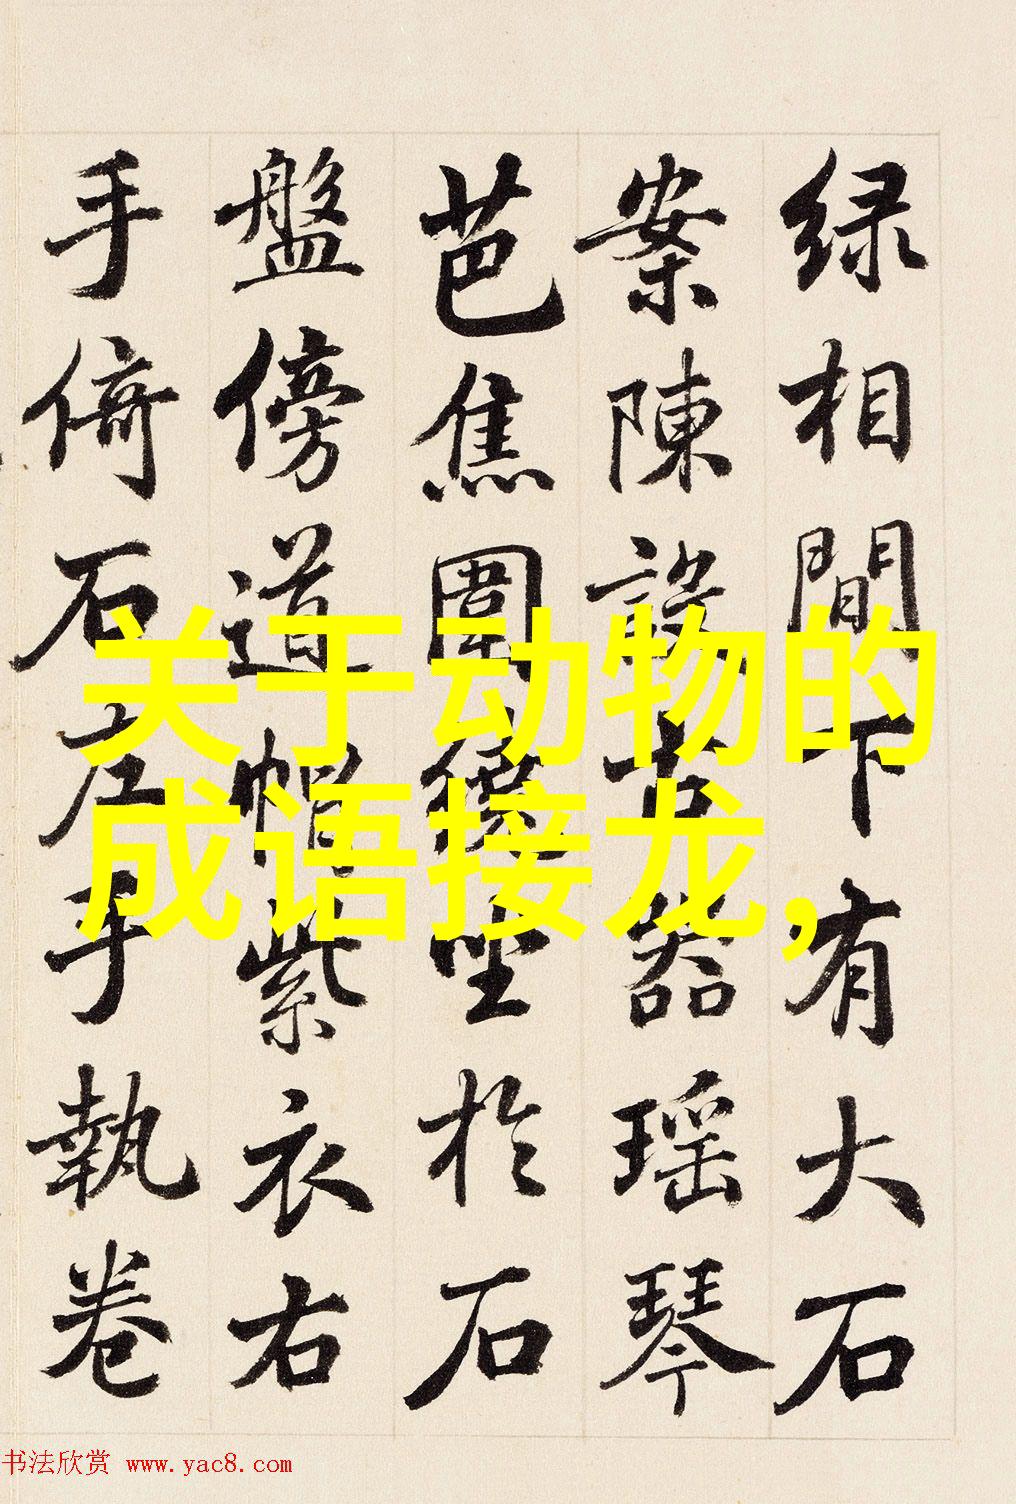 绿相間下有大石
案陳設古器瑶琴
芭焦圍繞坐於石
盤傍道帽紫衣右
手倚石左手執卷
关于动物的
成语接龙,
书法欣赏 www.yac8.com